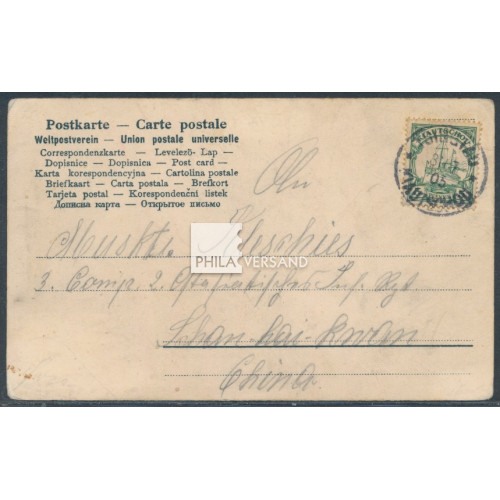 Postkarte — Carte postale
Weltpostverein — Union postale universelle
Correspondenzkarte — Levelező-Lap —
Dopisnice — Dopisnica — Post card —
Karta korespondencyjna — Cartolina postale
Briefkaart — Carta postala — Brefkort
Tarjeta postal — Korespondenční listek
Дописна карта — Открытое письмо
KIAUTSCHOU
An
Muskt.
PHILA VERSAND
3. Comp 2. Ostasiatisches Inf. Rgt
Shan-hai-kwan
China.